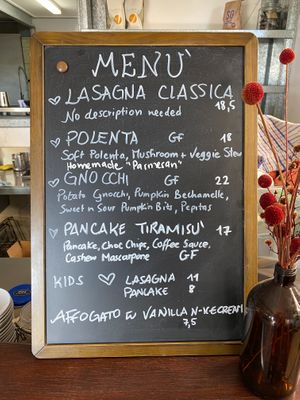 MENU'
♡ LASAGNA CLASSICA
18,5
No description needed
♡ POLENTA GF 18
Soft Polenta, Mushroom + Veggie Stew
Homemade "Parmesan"
♡ GNOCCHI GF 22
Potato Gnocchi, Pumpkin Bechamelle,
Sweet n Sour Pumpkin Bits, Pepitas
♡ PANCAKE TIRAMISU' 17
Pancake, Choc Chips, Coffee Sauce,
Cashew Mascarpone GF
KIDS ♡ LASAGNA 11
PANCAKE 8
AFFOGATO w VANILLA N-ICECREAM
7,5